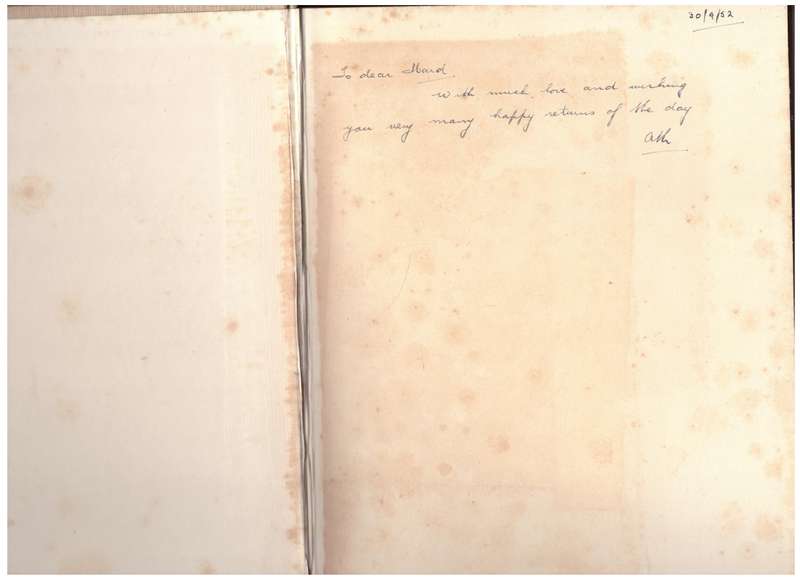 30/9/52
To dear
With much love and wishing
you very many happy returns of the day